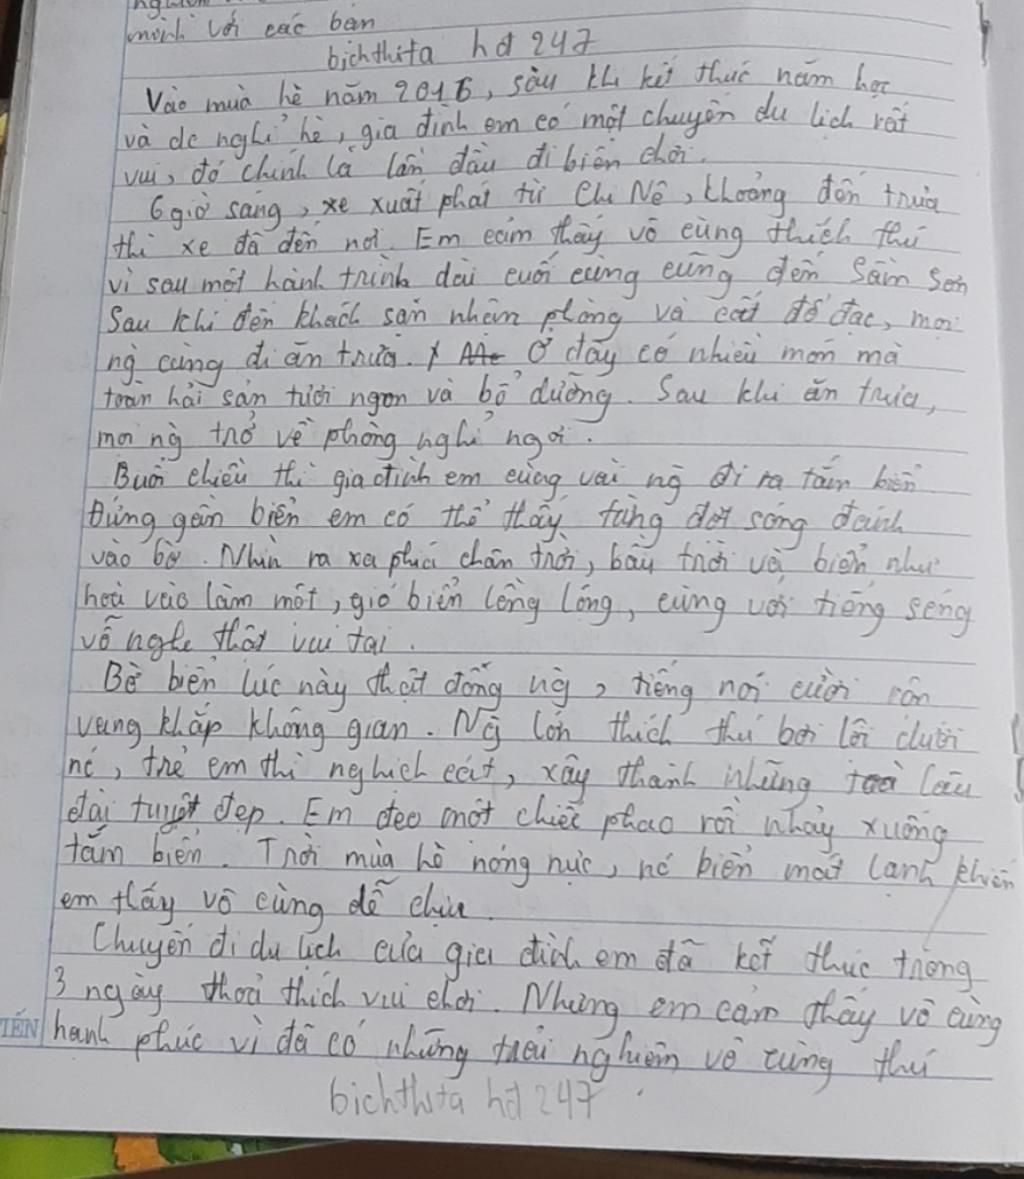 mình với các bạn
bichthita hđ 247
Vào mùa hè năm 2016, sau khi kết thúc năm học
và đc nghỉ hè, gia đình em có một chuyến du lịch rất
vui, đó chính là lần đầu đi biển chơi.
6 giờ sáng, xe xuất phát từ Chi Nê, khoảng đến trưa
thì xe đã đến nơi. Em cảm thấy vô cùng thích thú
vì sau một hành trình dài cuối cùng cũng đến Sầm Sơn
Sau khi đến khách sạn nhận phòng và cất đồ đạc, mọi
ng cùng đi ăn trưa. Ở đây có nhiều món mà
toàn hải sản tươi ngon và bổ dưỡng. Sau khi ăn trưa,
mọi ng trở về phòng nghỉ ngơi.
Buổi chiều thì gia đình em cùng vài ng đi ra tắm biển
Đứng gần biển em có thể thấy từng đợt sóng đánh
vào bờ. Nhìn ra xa phía chân trời, bầu trời và biển như
hoà vào làm một, gió biển lồng lộng, cùng với tiếng sóng
vỗ nghe thật vui tai.
Bờ biển lúc này thật đông ng, tiếng nói cười rôn
vang khắp không gian. Ng lớn thích thú bơi lội dưới
nc, trẻ em thì nghịch cát, xây thành những toà lâu
đài tuyệt đẹp. Em đeo một chiếc phao rồi nhảy xuống
tắm biển. Trời mùa hè nóng nực, nc biển mát lạnh khiến
em thấy vô cùng dễ chịu.
Chuyến đi du lịch của gia đình em đã kết thúc trong
3 ngày thoả thích vui chơi. Nhưng em cảm thấy vô cùng
hạnh phúc vì đã có những trải nghiệm vô cùng thú
bichthita hđ 247